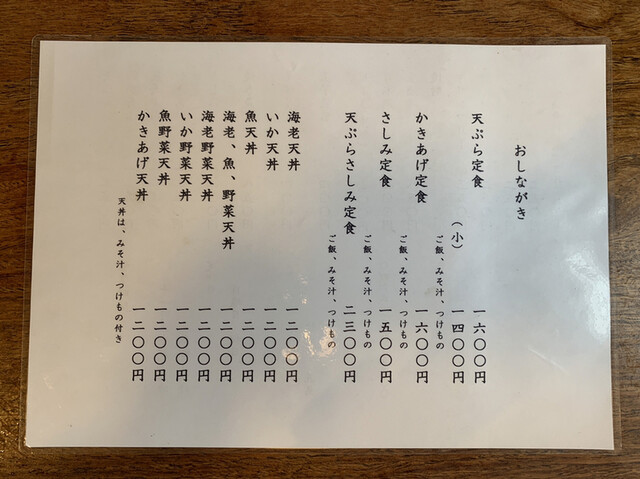 おしながき
天ぷら定食 一六〇〇円
(小) 一四〇〇円
ご飯、みそ汁、つけもの
かきあげ定食 一六〇〇円
ご飯、みそ汁、つけもの
さしみ定食 一五〇〇円
ご飯、みそ汁、つけもの
天ぷらさしみ定食 二三〇〇円
ご飯、みそ汁、つけもの
海老天丼 一二〇〇円
いか天丼 一二〇〇円
魚天丼 一二〇〇円
海老、魚、野菜天丼 一二〇〇円
海老野菜天丼 一二〇〇円
いか野菜天丼 一二〇〇円
魚野菜天丼 一二〇〇円
かきあげ天丼 一二〇〇円
天丼は、みそ汁、つけもの付き